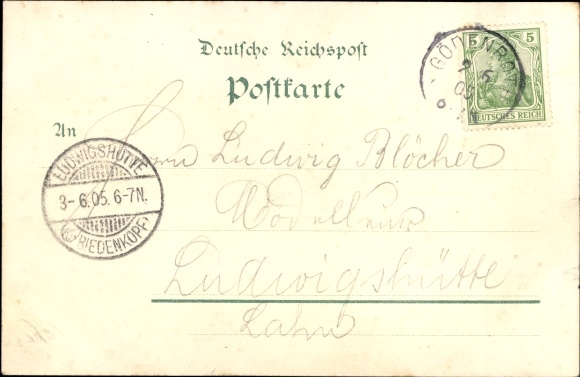 Deutsche Reichspost
Postkarte
5 5
DEUTSCHES REICH
GÖDENROTH
An
Herrn Ludwig Blöcher
Modelleur
Ludwigshütte
Lahn
LUDWIGSHÜTTE
3-6.05. 6-7N.
BIEDENKOPF